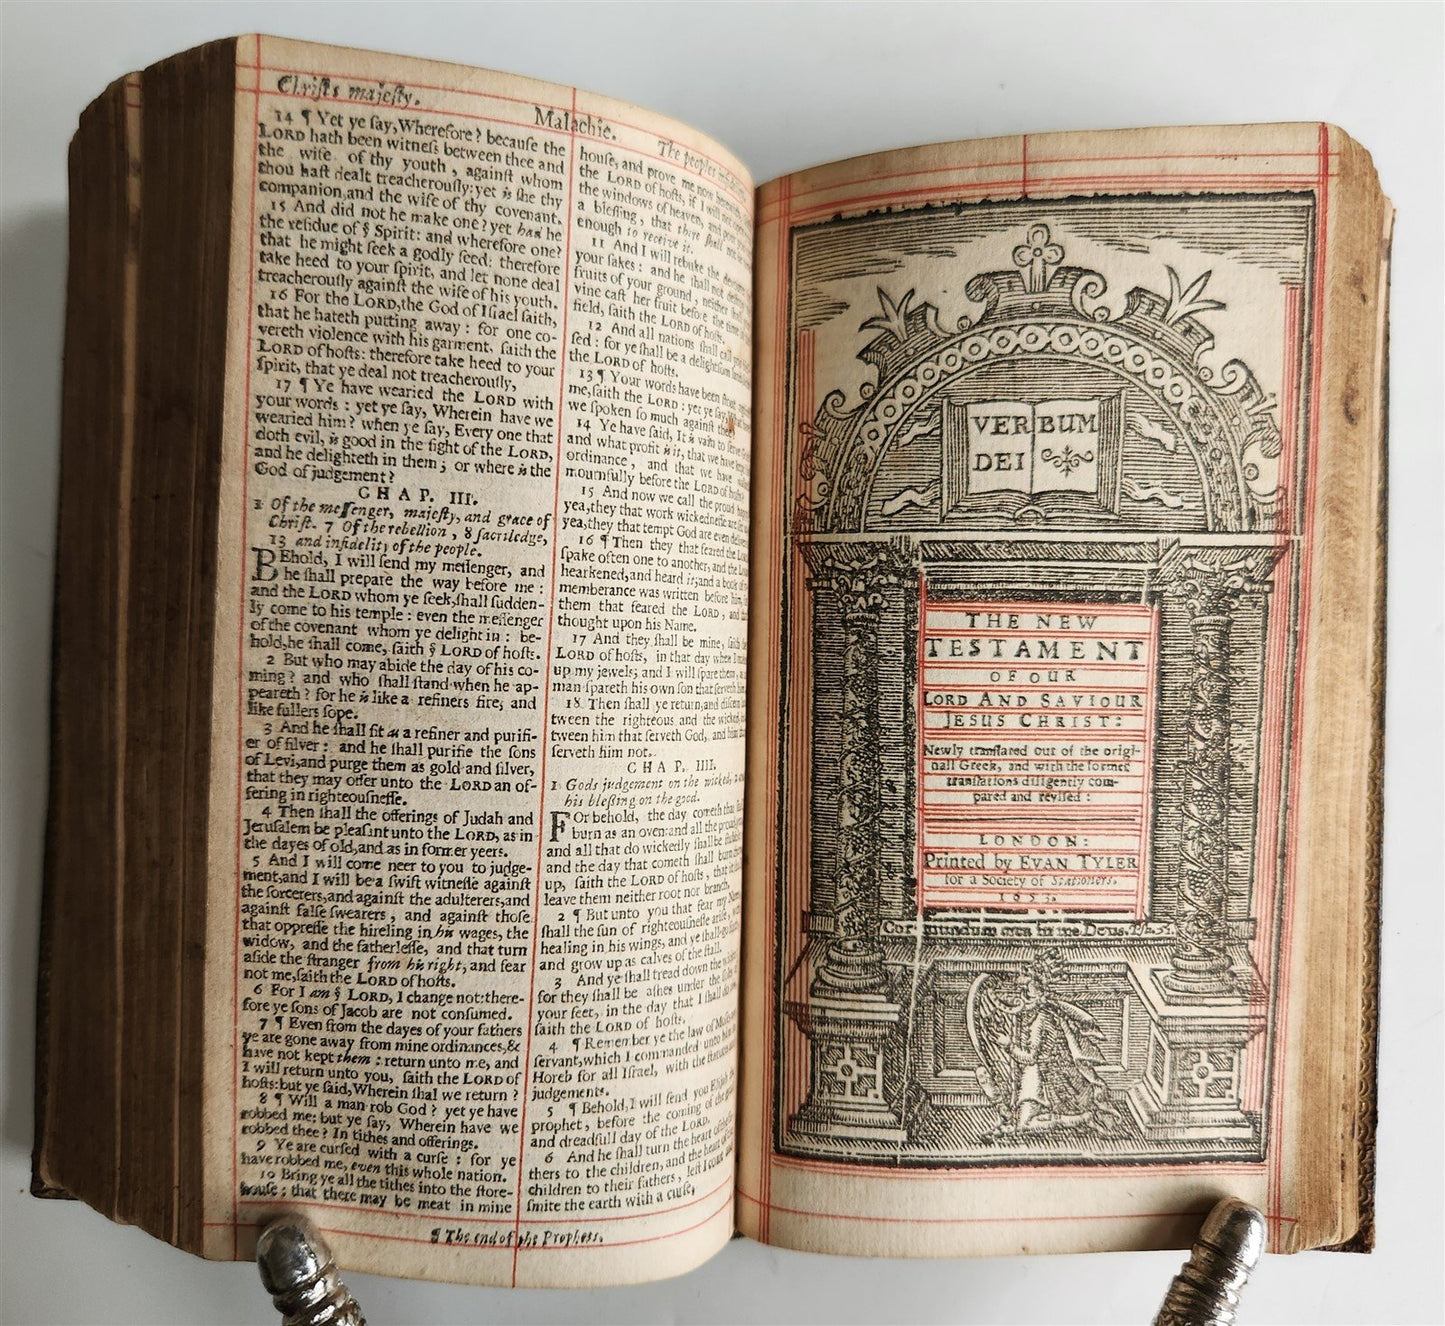 Chriſts majeſty.
Malachie.
The peoples
14 ¶ Yet ye ſay, Wherefore? becauſe the
LORD hath been witneſs between thee and
the wife of thy youth, againſt whom
thou haſt dealt treacherouſly: yet is ſhe thy
companion, and the wife of thy covenant.
15 And did not he make one? yet had he
the reſidue of yͤ Spirit: and wherefore one?
that he might ſeek a godly ſeed: therefore
take heed to your ſpirit, and let none deal
treacherouſly againſt the wife of his youth.
16 For the LORD, the God of Iſrael ſaith,
that he hateth putting away: for one co-
vereth violence with his garment, ſaith the
LORD of hoſts: therefore take heed to your
ſpirit, that ye deal not treacherouſly,
17 ¶ Ye have wearied the LORD with
your words: yet ye ſay, Wherein have we
wearied him? when ye ſay, Every one that
doth evil, is good in the ſight of the LORD,
and he delighteth in them; or where is the
God of judgement?
CHAP. III.
1 Of the meſſenger, majeſty, and grace of
Chriſt. 7 Of the rebellion, 8 ſacriledge,
13 and infidelity of the people.
BEhold, I will ſend my meſſenger, and
he ſhall prepare the way before me:
and the LORD whom ye ſeek, ſhall ſudden-
ly come to his temple: even the meſſenger
of the covenant whom ye delight in: be-
hold, he ſhall come, ſaith yͤ LORD of hoſts.
2 But who may abide the day of his co-
ming? and who ſhall ſtand when he ap-
peareth? for he is like a refiners fire, and
like fullers ſope.
3 And he ſhall ſit as a refiner and purifi-
er of ſilver: and he ſhall purifie the ſons
of Levi, and purge them as gold and ſilver,
that they may offer unto the LORD an of-
fering in righteouſneſſe.
4 Then ſhall the offerings of Judah and
Jeruſalem be pleaſant unto the LORD, as in
the dayes of old, and as in former yeers.
5 And I will come neer to you to judge-
ment, and I will be a ſwift witneſſe againſt
the ſorcerers, and againſt the adulterers, and
againſt falſe ſwearers, and againſt thoſe
that oppreſſe the hireling in his wages, the
widow, and the fatherleſſe, and that turn
aſide the ſtranger from his right, and fear
not me, ſaith the LORD of hoſts.
6 For I am yͤ LORD, I change not: there-
fore ye ſons of Jacob are not conſumed.
7 ¶ Even from the dayes of your fathers
ye are gone away from mine ordinances, &
have not kept them: return unto me, and
I will return unto you, ſaith the LORD of
hoſts: but ye ſaid, Wherein ſhal we return?
8 ¶ Will a man rob God? yet ye have
robbed me: but ye ſay, Wherein have we
robbed thee? In tithes and offerings.
9 Ye are curſed with a curſe: for ye
have robbed me, even this whole nation.
10 Bring ye all the tithes into the ſtore-
houſe; that there may be meat in mine
houſe, and prove me now herewith,
the LORD of hoſts, if I will not open
the windows of heaven, and pour
a bleſſing, that there ſhall not be
enough to receive it.
11 And I will rebuke the devourer
your ſakes: and he ſhall not deſtroy
fruits of your ground, neither ſhall
vine caſt her fruit before the time
field, ſaith the LORD of hoſts.
12 And all nations ſhall call you
ſed: for ye ſhall be a delightſom
the LORD of hoſts.
13 ¶ Your words have been ſtout
me, ſaith the LORD: yet ye ſay,
we ſpoken ſo much againſt thee?
14 Ye have ſaid, It is vain to ſerve God
and what profit is it, that we have kept
ordinance, and that we have walked
mournfully before the LORD of hoſts
15 And now we call the proud happy
yea, they that work wickedneſſe are
yea, they that tempt God are even
16 ¶ Then they that feared the LORD
ſpake often one to another, and the
hearkened, and heard it; and a book of
memberance was written before him,
them that feared the LORD, and
thought upon his Name.
17 And they ſhall be mine, ſaith
LORD of hoſts, in that day when I
up my jewels; and I will ſpare them,
man ſpareth his own ſon that ſerveth him.
18 Then ſhall ye return, and diſcern
tween the righteous and the wicked,
tween him that ſerveth God, and him
ſerveth him not.
CHAP. IIII.
1 Gods judgement on the wicked, 2 and
his bleſſing on the good.
FOr behold, the day cometh that
burn as an oven: and all the proud,
and all that do wickedly ſhall be
and the day that cometh ſhall burn
up, ſaith the LORD of hoſts, that it
leave them neither root nor branch.
2 ¶ But unto you that fear my Name
ſhall the ſun of righteouſneſſe ariſe, with
healing in his wings, and ye ſhall go
and grow up as calves of the ſtall.
3 And ye ſhall tread down the
for they ſhall be aſhes under the
your feet, in the day that I ſhall do
ſaith the LORD of hoſts.
4 ¶ Remember ye the law of Moſes
ſervant, which I commanded unto him
Horeb for all Iſrael, with the ſtatutes
judgements.
5 ¶ Behold, I will ſend you Elijah
prophet, before the coming of the
and dreadfull day of the LORD.
6 And he ſhall turn the heart of
thers to the children, and the heart
children to their fathers, leſt I come
ſmite the earth with a curſe,
¶ The end of the Prophets.
VERBUM
DEI
THE NEW
TESTAMENT
OF OUR
LORD AND SAVIOUR
JESUS CHRIST:
Newly tranſlated out of the origi-
nall Greek, and with the former
tranſlations diligently com-
pared and reviſed:
LONDON:
Printed by EVAN TYLER
for a Society of Stationers.
1653.
Cor mundum crea in me Deus. Pſ. 51.